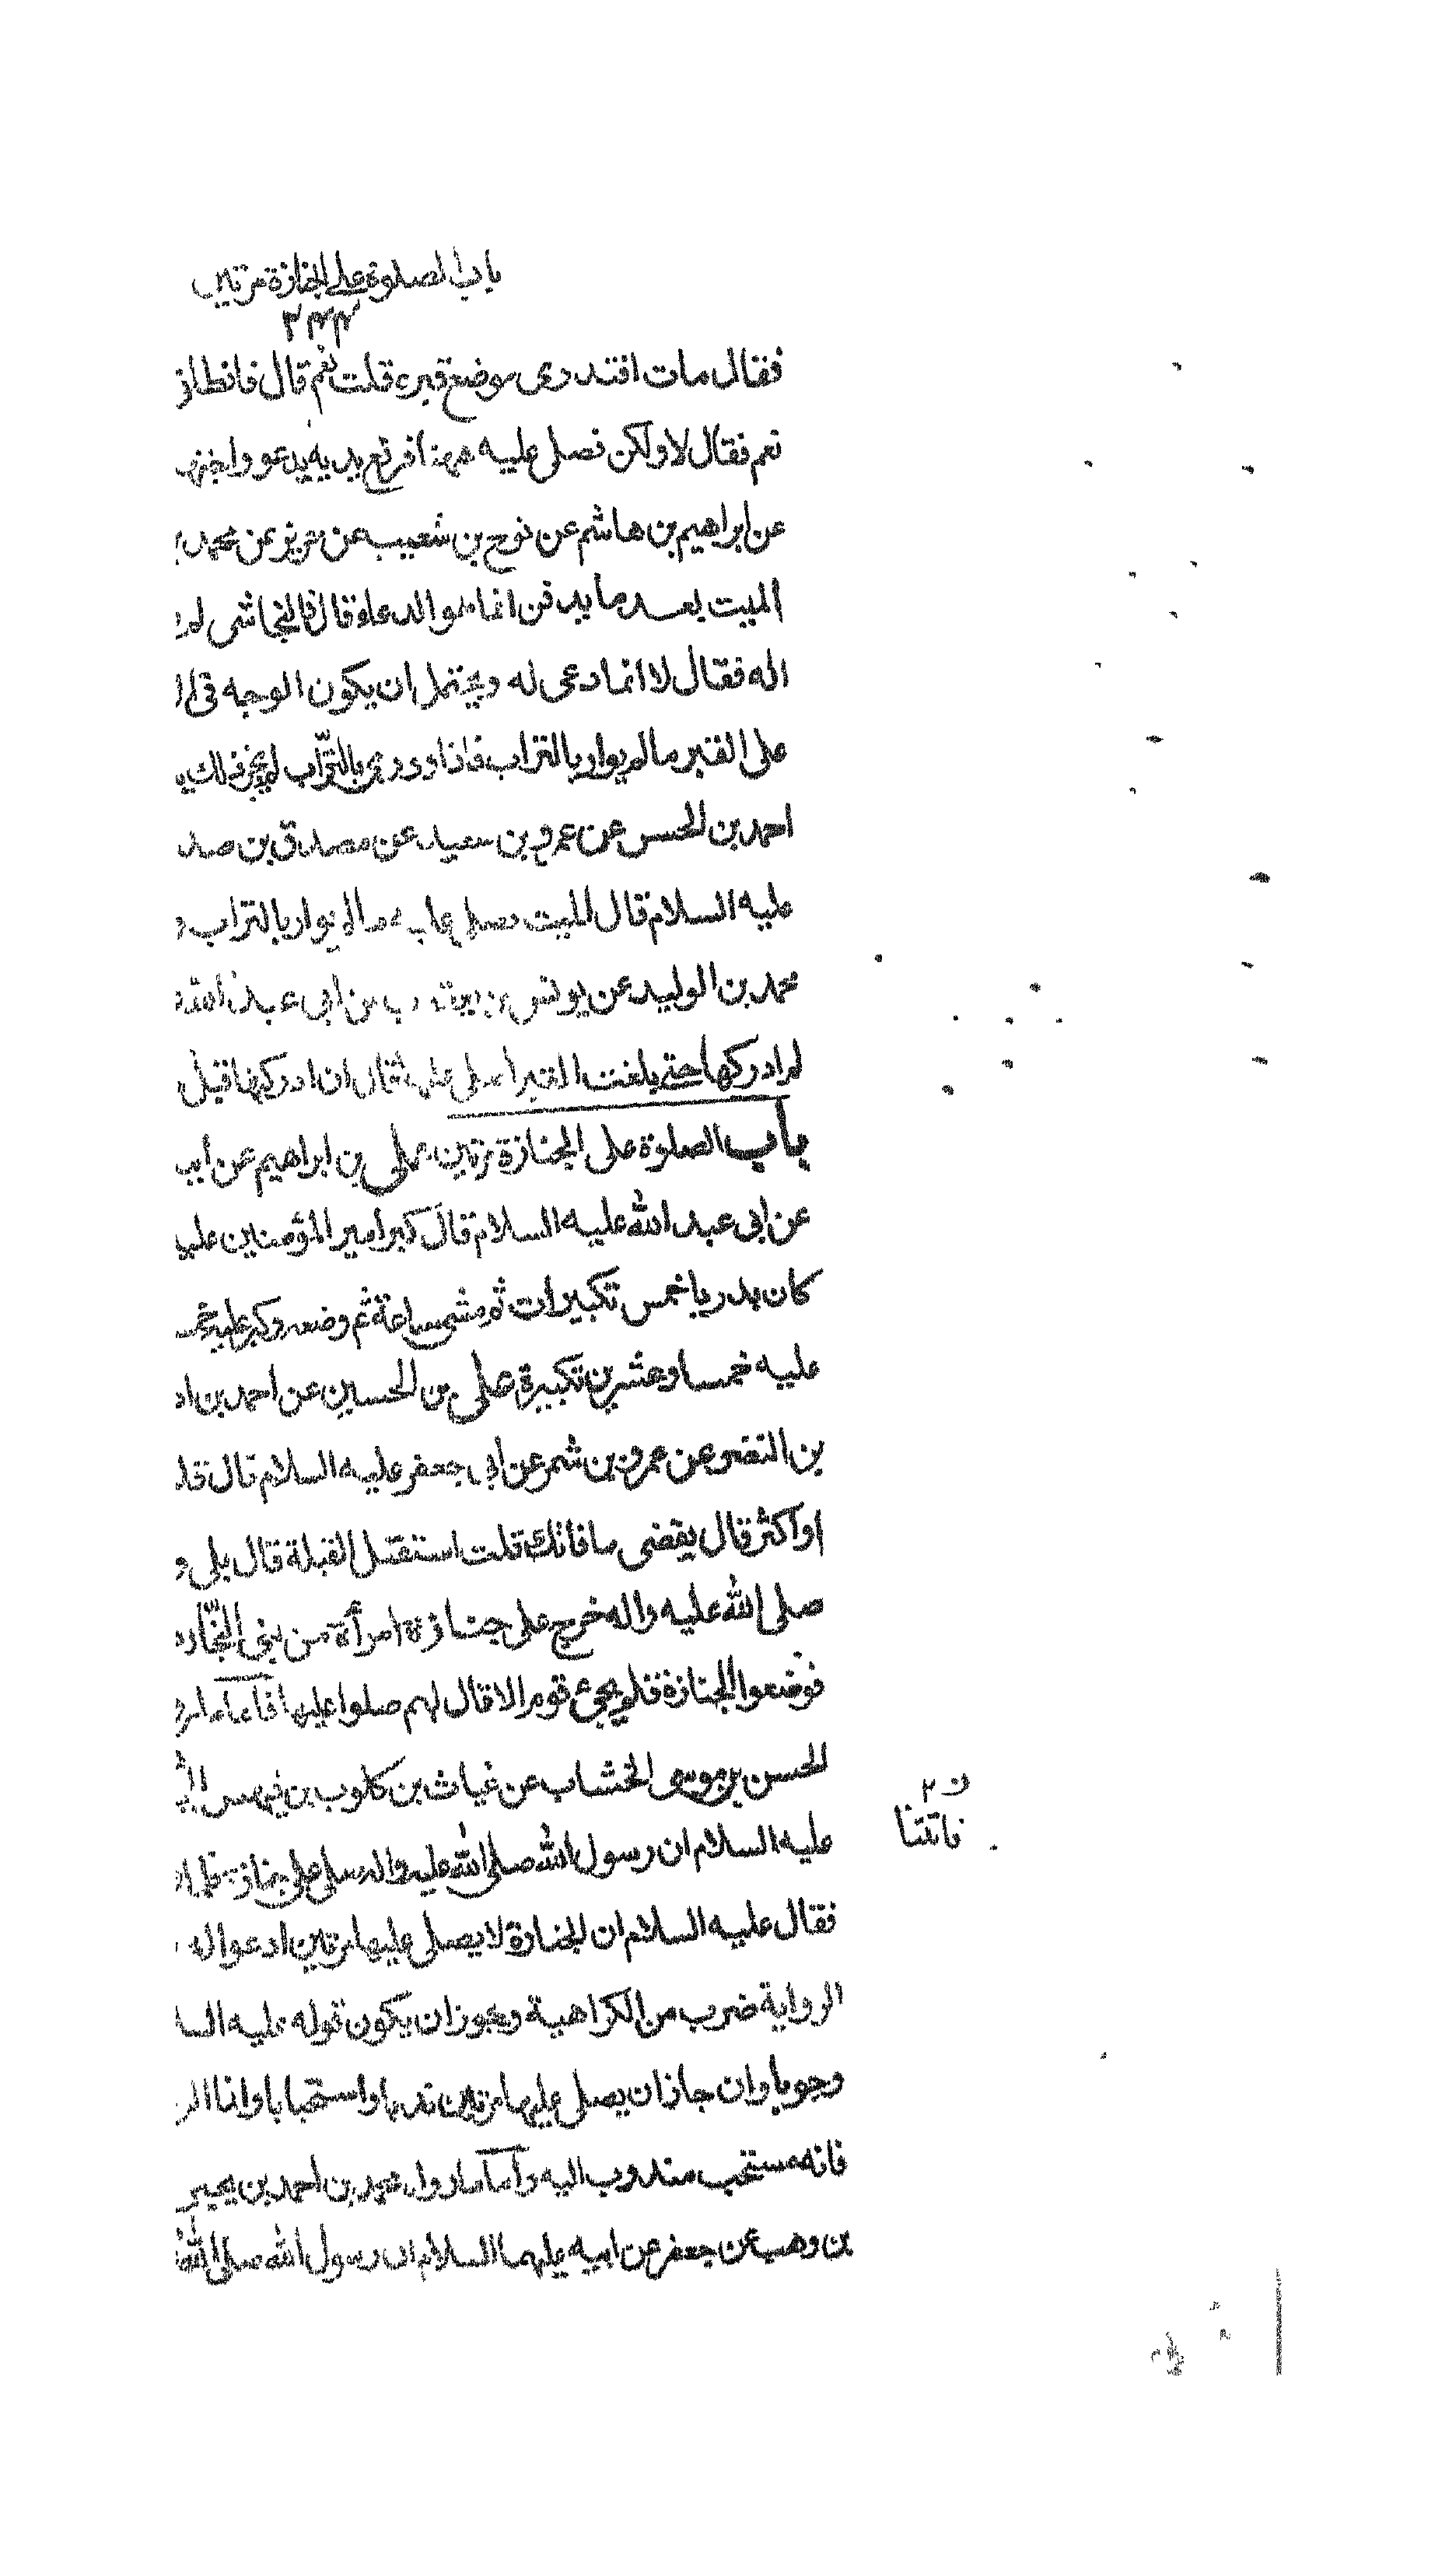 باب الصلوة على الجنازة مرتين
٢٤٤
فقال مات افتدرى موضع قبره قلت نعم قال فانطلق
نعم فقال لا ولكن نصلى عليه ههنا فرفع يديه يدعو واجتهد
عن ابراهيم بن هاشم عن نوح بن شعيب عن حريز عن محمد
الميت بعد ما يدفن انما هو الدعاء قال فالنجاشى لم
اله فقال لا انما دعى له ويحتمل ان يكون الوجه فى
على القبر ما لم يوار بالتراب فاذا وورى بالتراب لم يجز ذلك
احمد بن الحسن عن عمرو بن سعيد عن مصدق بن صد
عليه السلام قال الميت يصلى عليه ما لم يوار بالتراب و
محمد بن الوليد عن يونس بن يعقوب عن ابى عبد الله
لم ادركها حتى بلغت القبر اصلى عليها قال ان ادركتها قبل
باب الصلوة على الجنازة مرتين على بن ابراهيم عن ابيه
عن ابى عبد الله عليه السلام قال كبر امير المؤمنين عليه
كان بدريا خمس تكبيرات ثم مشى ساعة ثم وضعه وكبر عليه خمسة
عليه خمسا وعشرين تكبيرة على بن الحسين عن احمد بن اد
بن النضر عن عمرو بن شمر عن ابى جعفر عليه السلام قال قلت
او اكثر قال يقضى ما فاتك قلت استقبل القبلة قال بلى و
صلى الله عليه واله خرج على جنازة امرأة من بنى النجار
فوضعوا الجنازة فلم يجئ قوم الا قال لهم صلوا عليها فاما ما
الحسن بن موسى الخشاب عن غياث بن كلوب بن فيهس
عليه السلام ان رسول الله صلى الله عليه واله صلى على جنازة فلما
فقال عليه السلام ان الجنازة لا يصلى عليها مرتين ادعوا له
الرواية ضرب من الكراهية ويجوز ان يكون قوله عليه السلا
وجوبا وان جاز ان يصلى عليها مرتين ندبا واستحبابا وانا
فانه مستحب مندوب اليه واما ما رواه محمد بن احمد بن يحيى
بن وهب عن جعفر عن ابيه عليهما السلام ان رسول الله صلى الله
ف ٢
فاتتنا